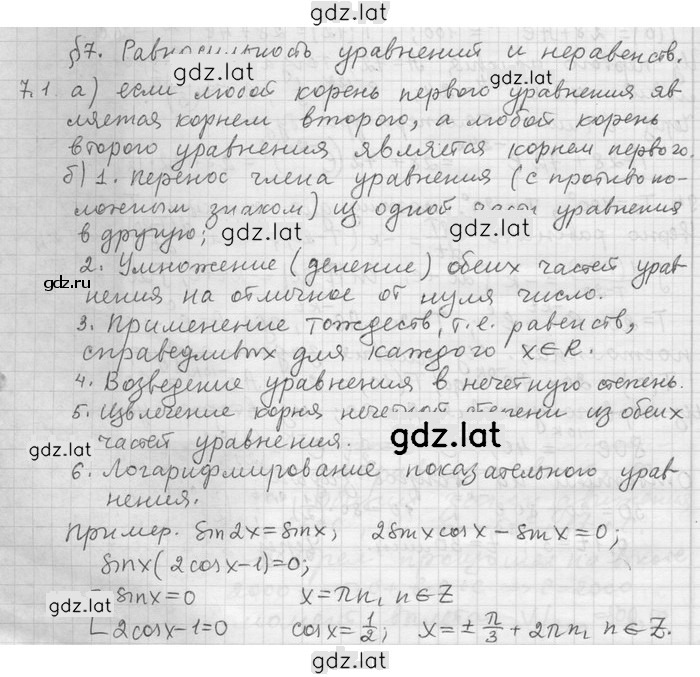 gdz.lat
§7. Равносильность уравнений и неравенств.
gdz.lat
7.1 а) если любой корень первого уравнения яв-
ляется корнем второго, а любой корень
второго уравнения является корнем первого.
б) 1. перенос члена уравнения (с противопо-
ложным знаком) из одной части уравнения
в другую;
gdz.lat gdz.lat
2. Умножение (деление) обеих частей урав-
gdz.lat
нения на отличное от нуля число.
3. Применение тождеств, т.е. равенств,
справедливых для каждого x∈R.
4. Возведение уравнения в нечетную степень.
5. Извлечение корня нечетной степени из обеих
gdz.lat gdz.lat
частей уравнения.
6. Логарифмирование показательного урав-
нения.
Пример. sin2x=sinx; 2sinxcosx-sinx=0;
sinx(2cosx-1)=0;
gdz.lat
[sinx=0 x=πn, n∈Z
[2cosx-1=0 cosx=1/2; x=±π/3+2πn, n∈Z.
gdz.lat